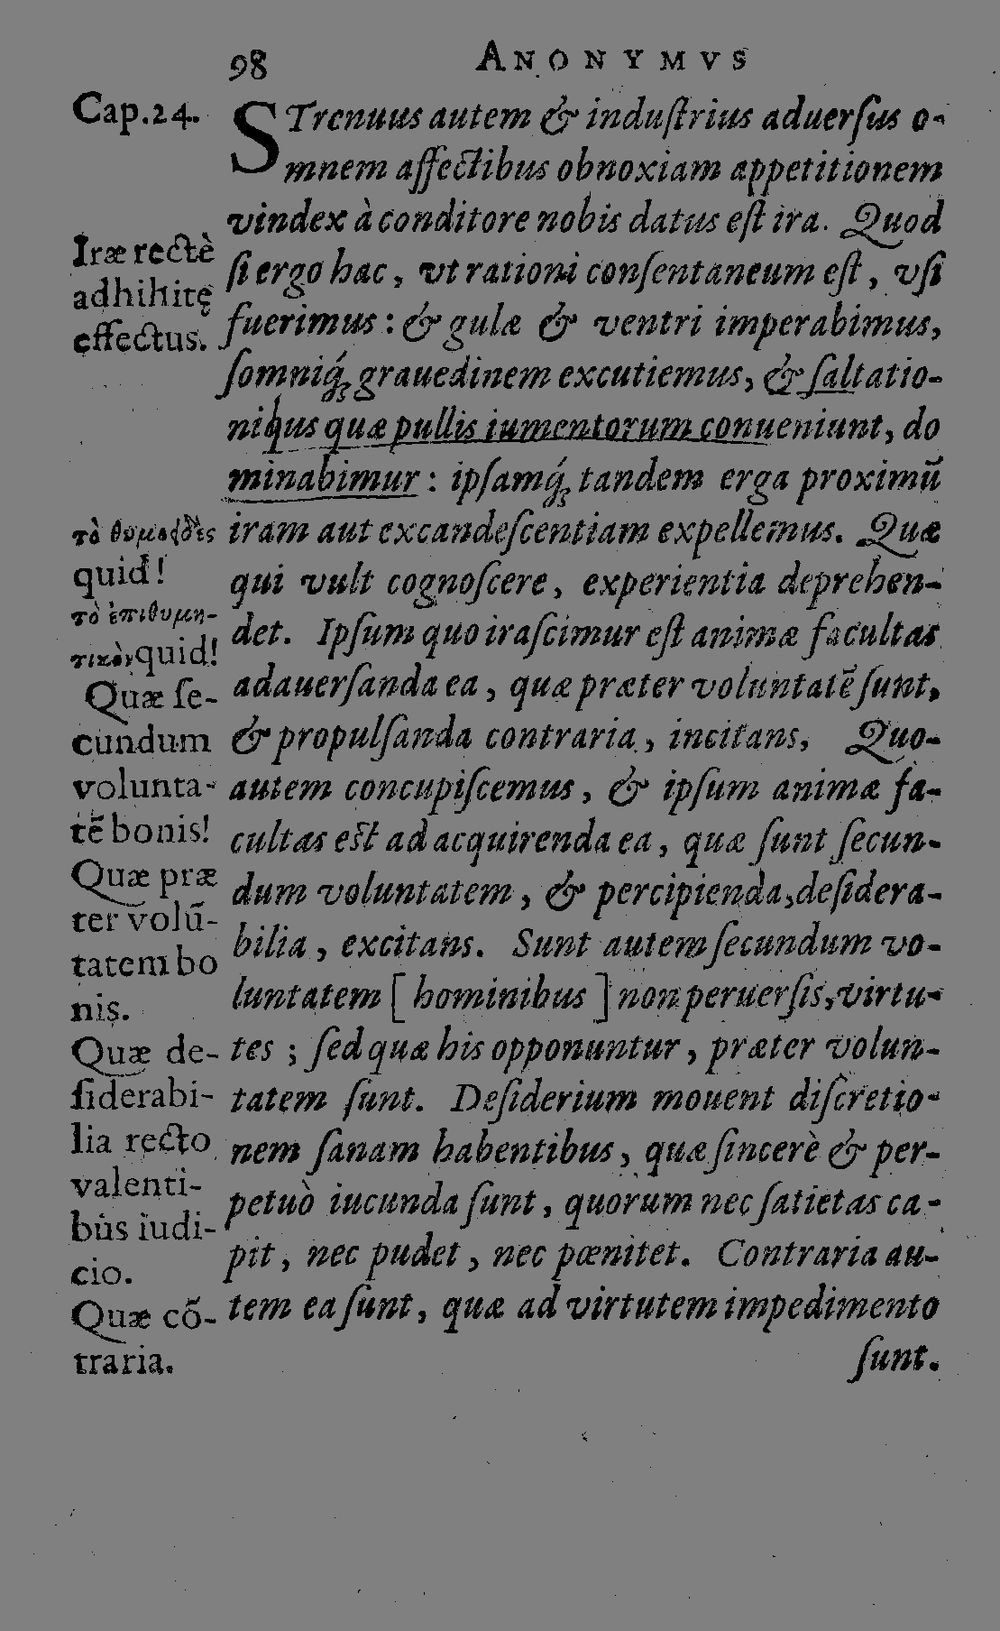 98 ANONYMVS
Cap.24.
STrenuus autem & induſtrius aduerſus o-
mnem affectibus obnoxiam appetitionem
vindex à conditore nobis datus eſt ira. Quod
ſi ergo hac, vt rationi conſentaneum eſt, vſi
fuerimus: & gulæ & ventri imperabimus,
ſomniq́; grauedinem excutiemus, & ſaltatio-
nibus quæ pullis iumentorum conueniunt, do
minabimur: ipſamq́; tandem erga proximū
iram aut excandeſcentiam expellemus. Quæ
qui vult cognoſcere, experientia deprehen-
det. Ipſum quo iraſcimur eſt animæ facultas
adauerſanda ea, quæ præter voluntatē ſunt,
& propulſanda contraria, incitans, Quo-
autem concupiſcemus, & ipſum animæ fa-
cultas eſt ad acquirenda ea, quæ ſunt ſecun-
dum voluntatem, & percipienda, deſidera-
bilia, excitans. Sunt autem ſecundum vo-
luntatem [ hominibus ] non peruerſis, virtu-
tes; ſed quæ his opponuntur, præter volun-
tatem ſunt. Deſiderium mouent diſcretio-
nem ſanam habentibus, quæ ſincerè & per-
petuò iucunda ſunt, quorum nec ſatietas ca-
pit, nec pudet, nec pœnitet. Contraria au-
tem ea ſunt, quæ ad virtutem impedimento
ſunt.
Iræ rectè
adhibitę
effectus.
τὸ θυμοειδὲς
quid!
τὸ ἐπιθυμη-
τικὸν quid!
Quæ ſe-
cundum
volunta-
tē bonis!
Quæ præ
ter volū-
tatem bo
nis.
Quæ de-
ſiderabi-
lia recto
valenti-
bus iudi-
cio.
Quæ cō-
traria.